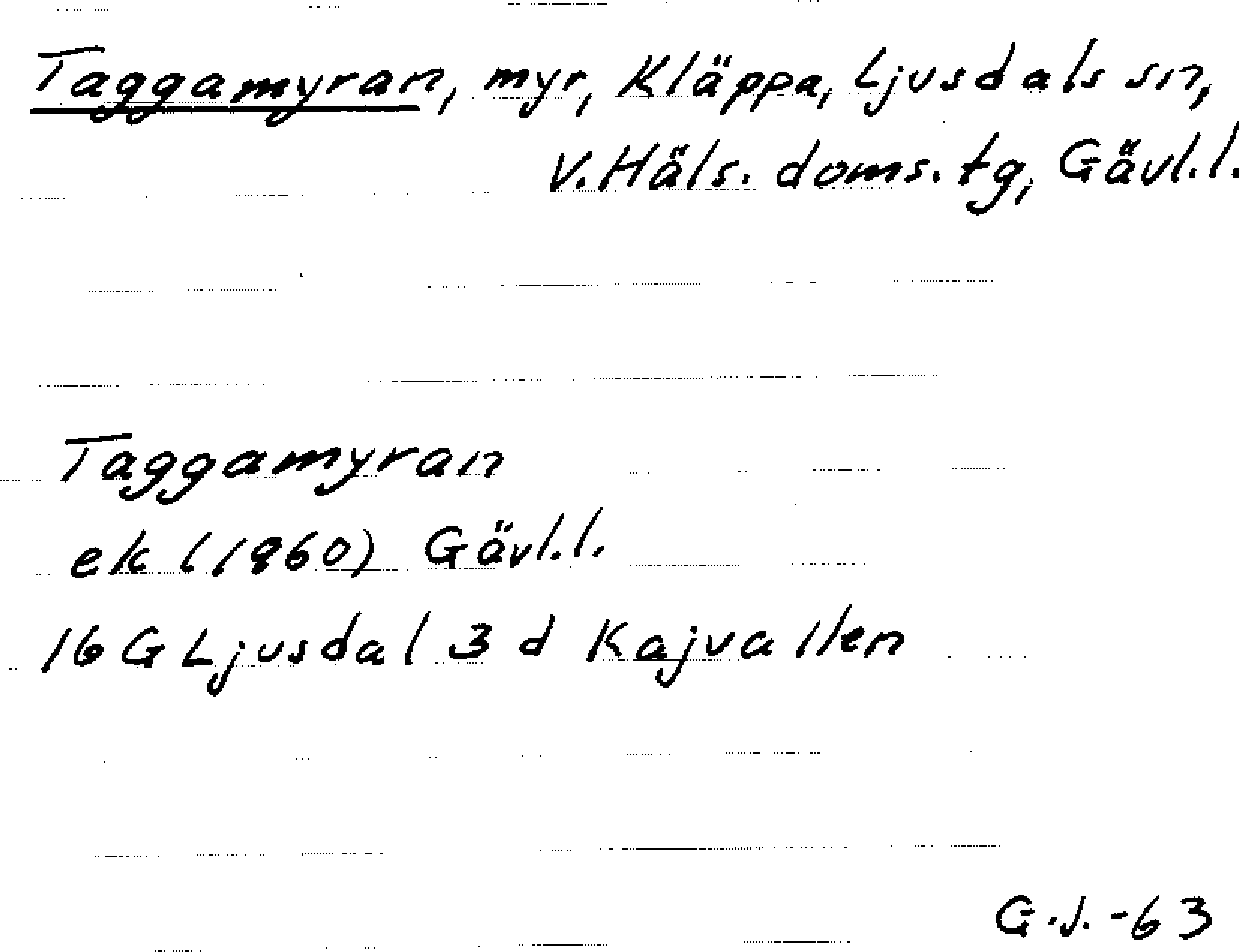 Taggamyran, myr, Kläppa, Ljusdals sn,
V.Häls. doms. tg, Gävl.l.
Taggamyran
ek (1960) Gävl.l.
16 G Ljusdal 3 d Kajvallen
G.J.-63